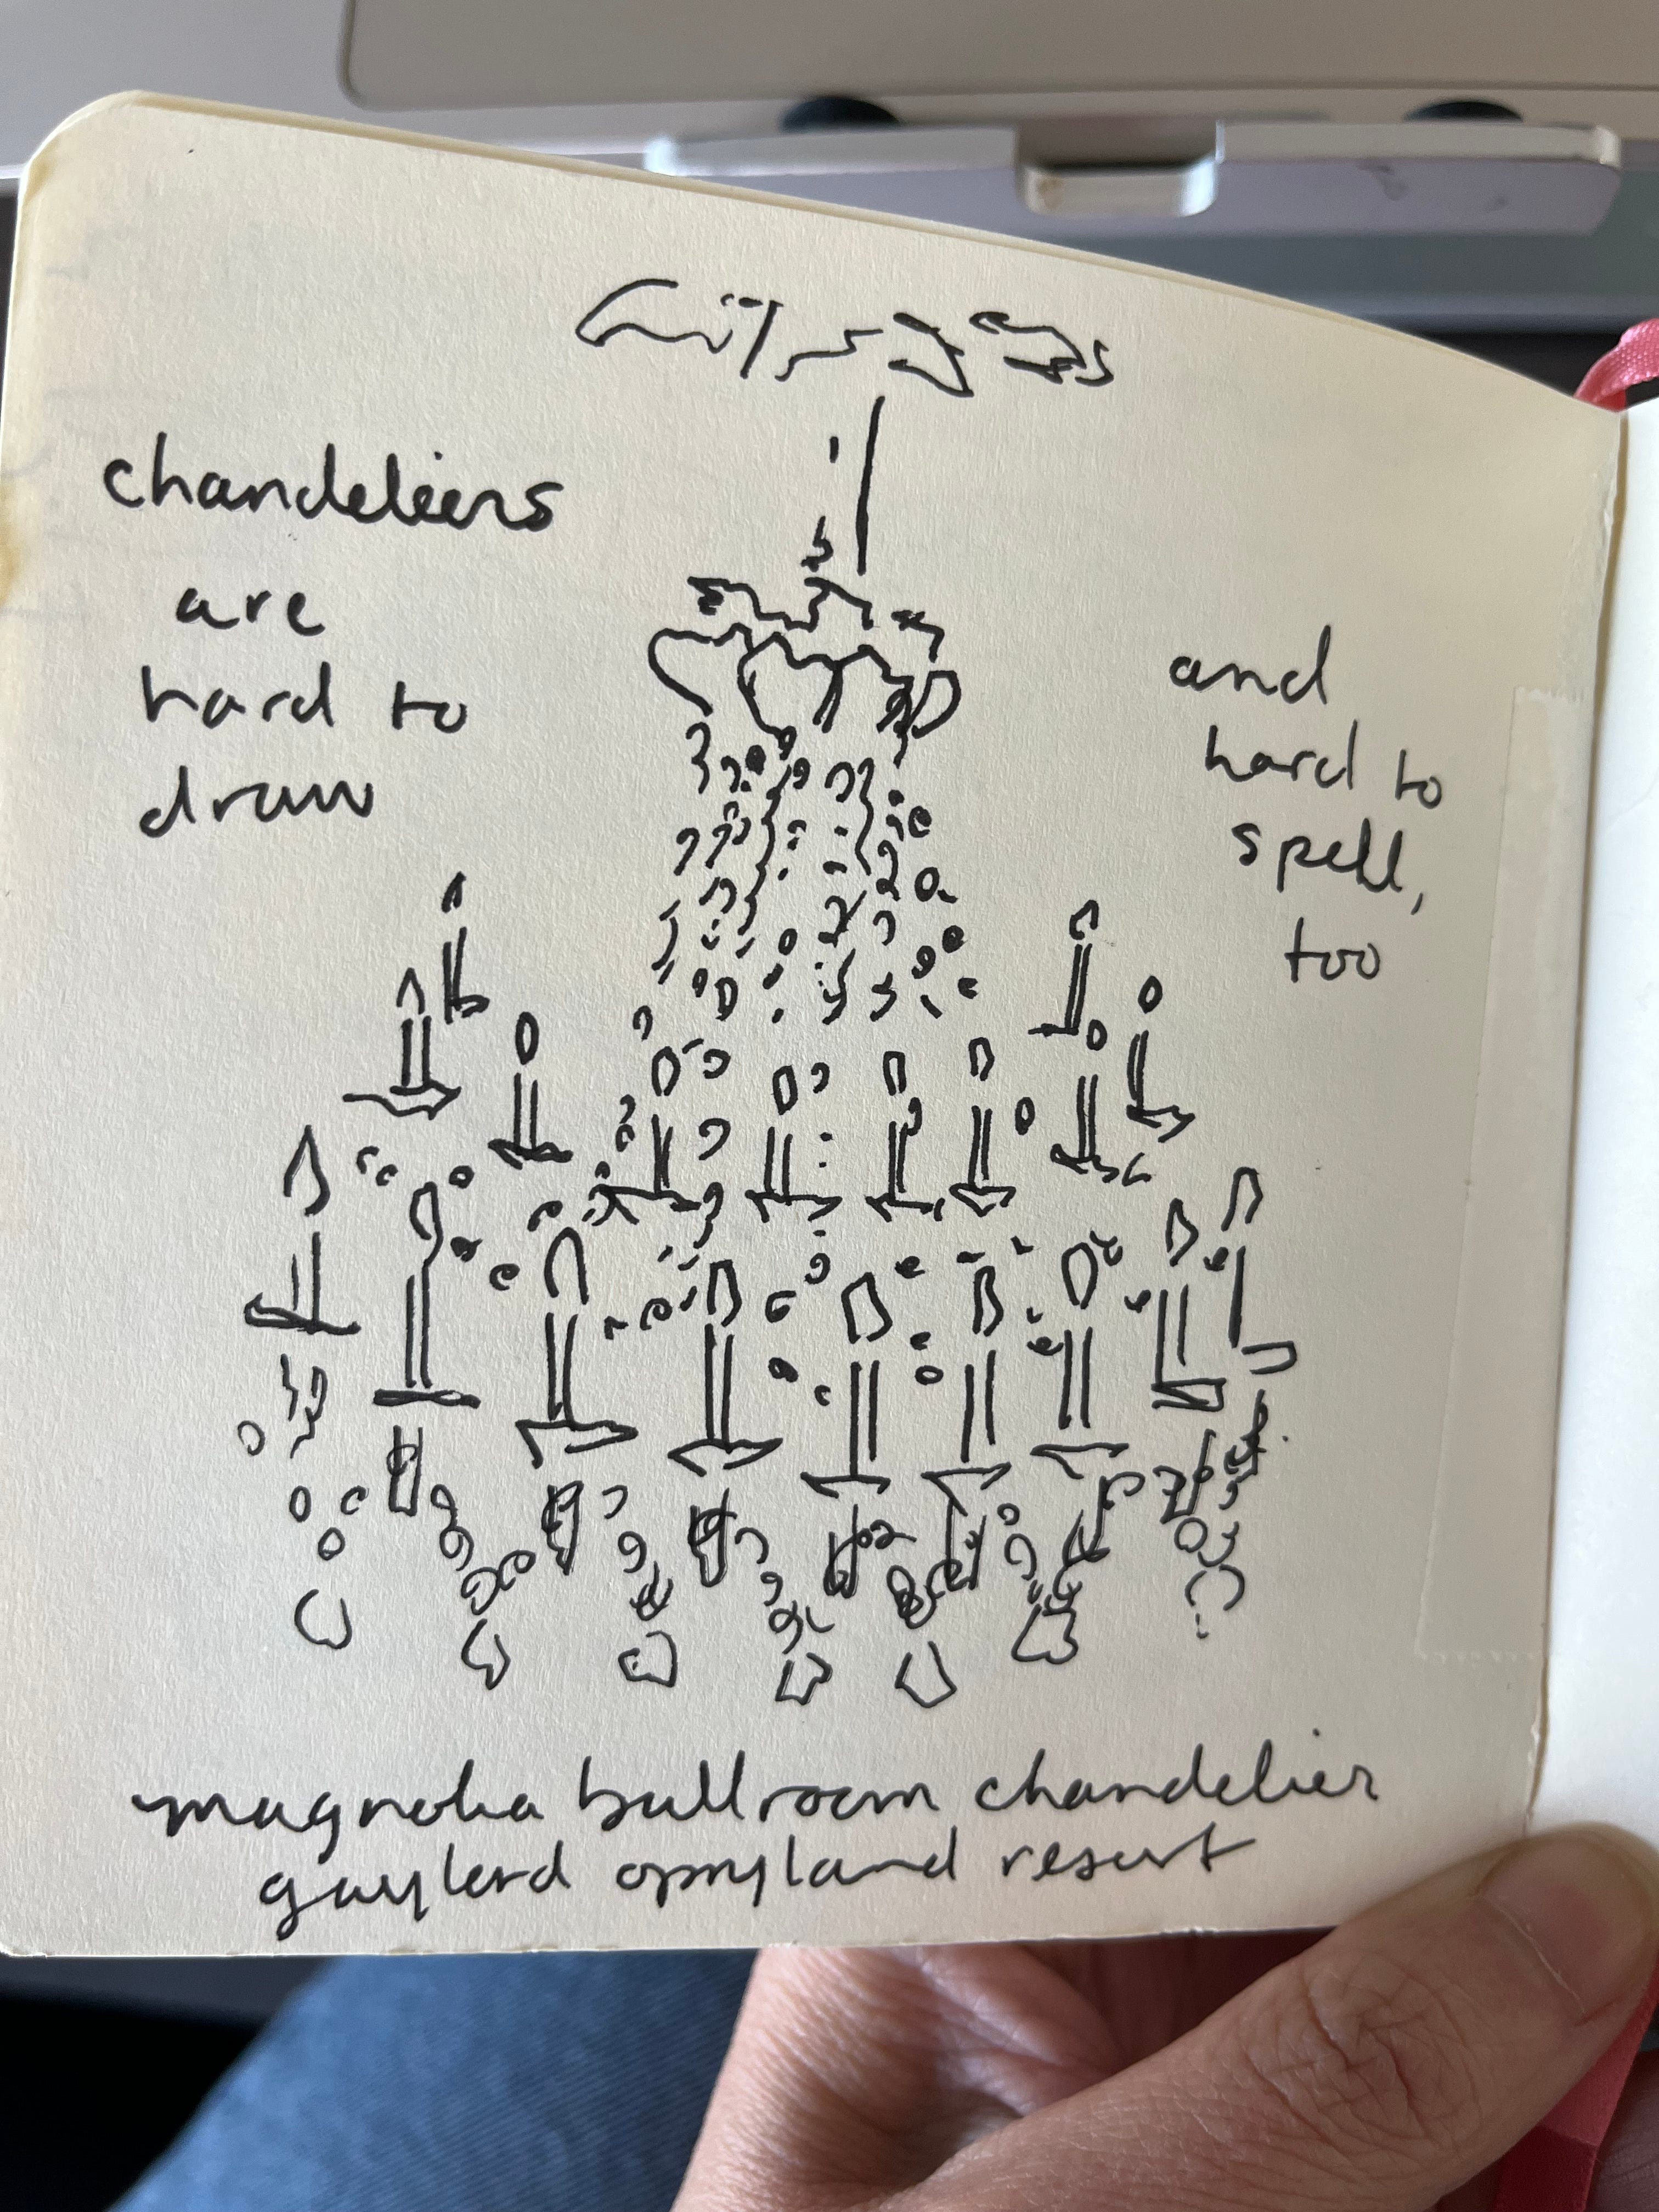 chandeleirs
are
hard to
draw
and
hard to
spell,
too
magnolia ballroom chandelier
gaylord opryland resort